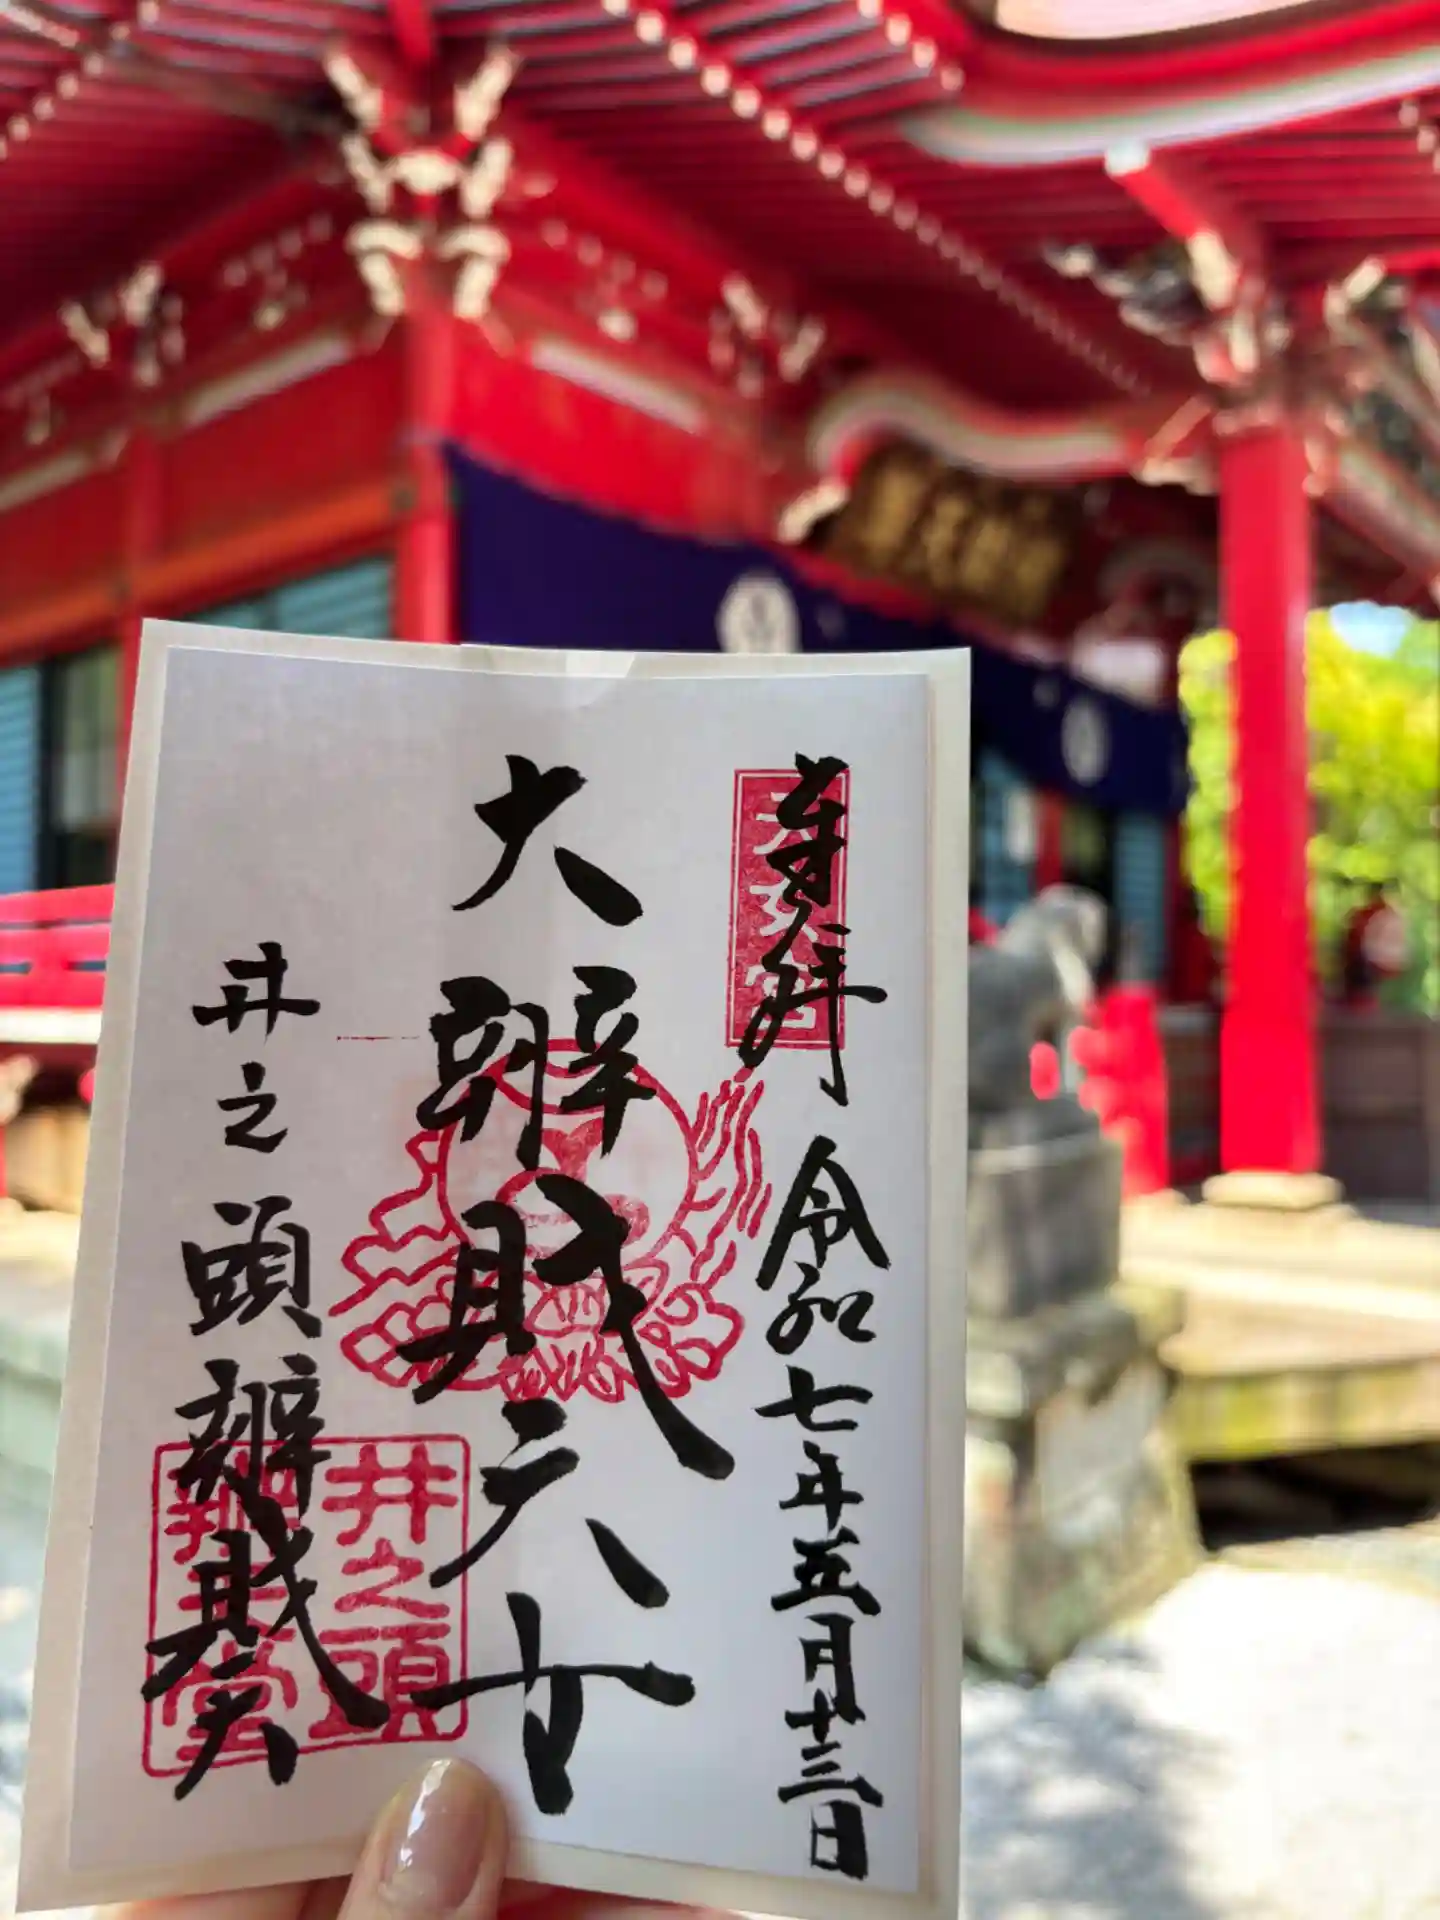 奉拝 令和七年五月十三日
天女宮
大辨財天女
井之頭辨財天
井之頭
辨天堂